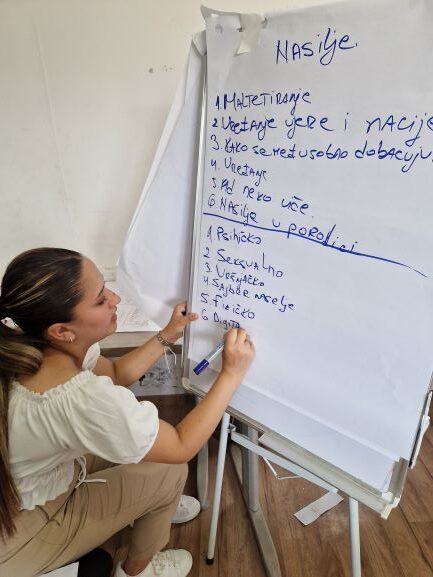 NASILJE.
1. MALTETIRANJE
2. VREĐANJE VJERE i NACIJE
3. KAKO SE MEĐUSOBNO dobacuju.
4. VREĐANJE
5. neko uče.
6. NASILJE U PORODICI
1. Psihičko
2 Seksualno
3 VRŠNJAČKO
4 SAJBER NASELJE
5. Fizičko
6 Digita